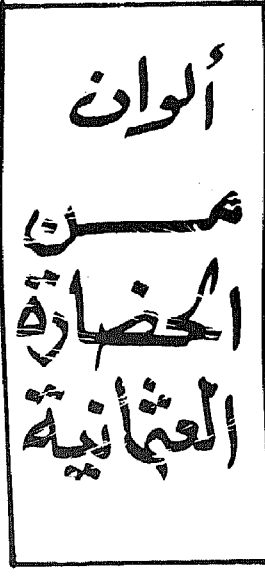 ألوان
من
الحضارة
العثمانية